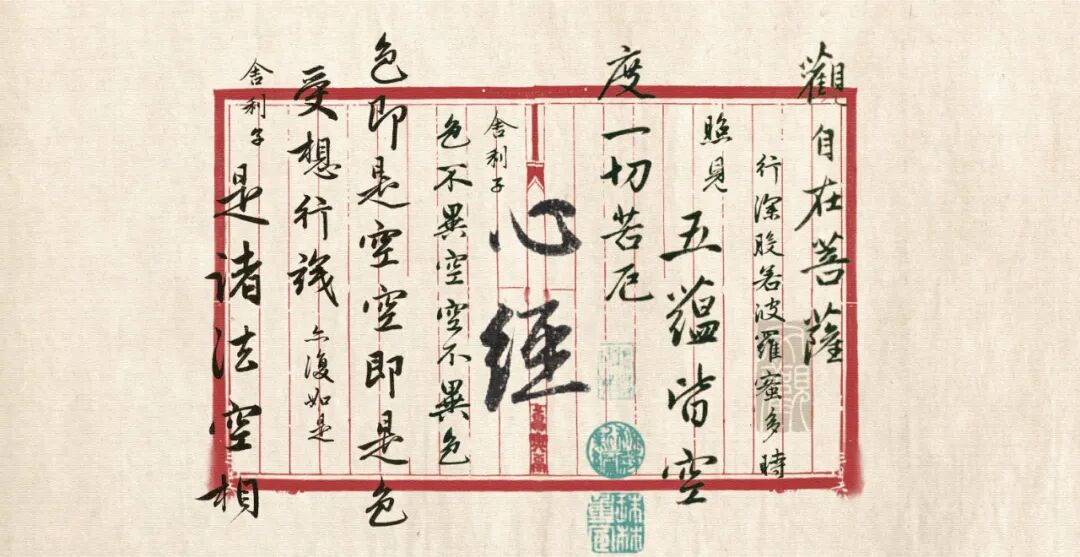 觀自在菩薩
行深般若波羅蜜多時
照見
五蘊皆空
度一切苦厄
心經
舍利子
色不異空空不異色
色即是空空即是色
受想行識
亦復如是
舍利子
是诸法空相